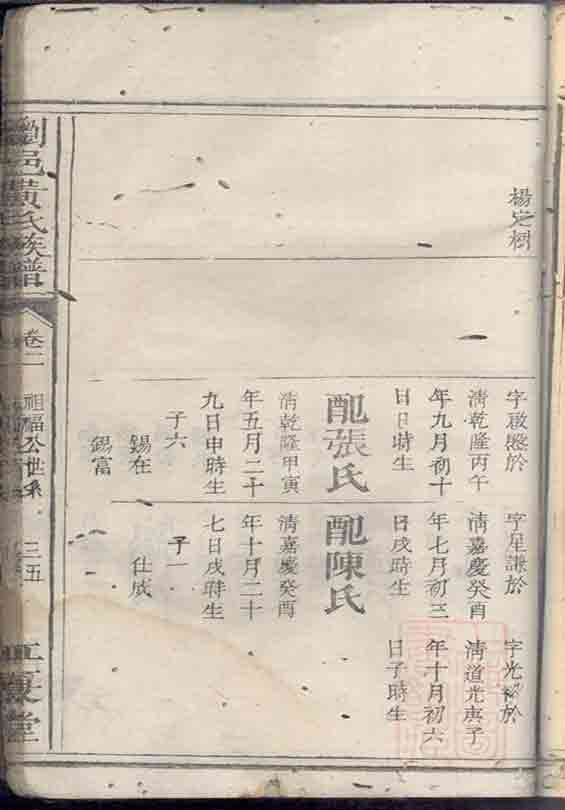 楊定樹
字啟盛於
清乾隆丙午
年九月初十
日日時生
配張氏
清乾隆甲寅
年五月二十
九日申時生
子六
錫在
錫富
字星謙於
清嘉慶癸酉
年七月初三
日戌時生
配陳氏
清嘉慶癸酉
年十月二十
七日戌時生
子一
仕成
字光於
清道光庚子
年十月初六
日子時生
瀏邑黃氏族譜
卷二
祖福公世系
三五
江夏堂